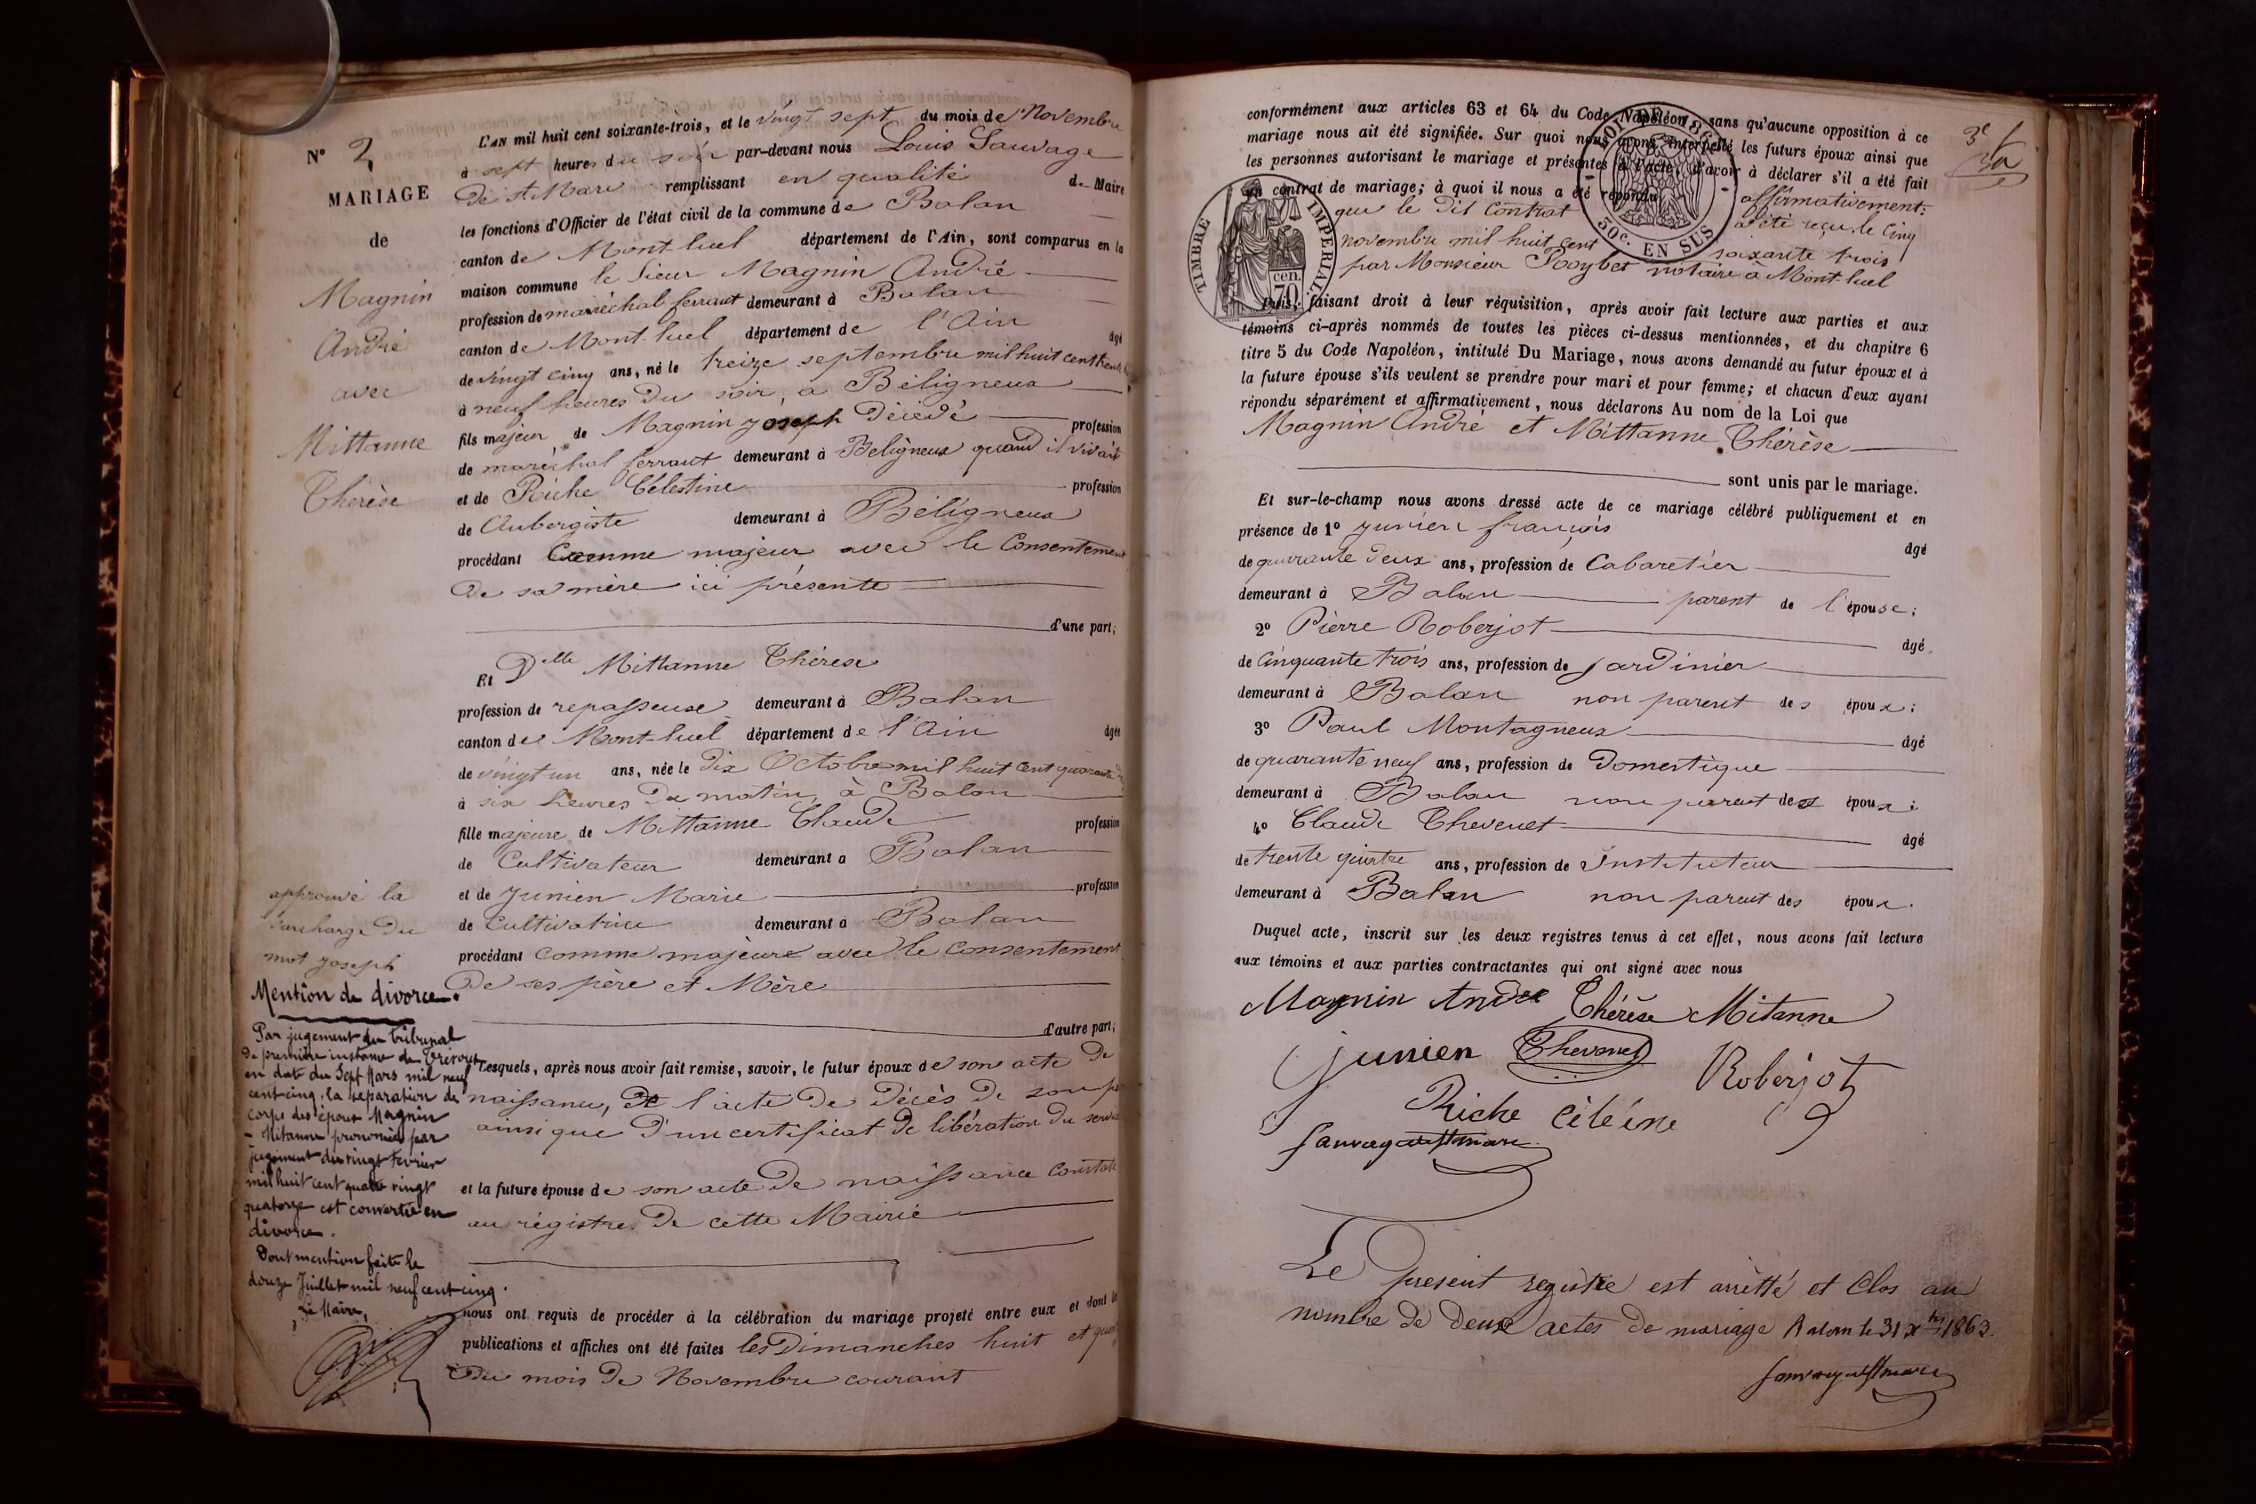 N° 2
MARIAGE
de
Magnin
André
avec
Mittanne
Thérèse
approuvé la
surcharge du
mot joseph
Mention de divorce.
Par jugement du tribunal
de première instance de Trévoux
en date du Sept Mars mil neuf
cent cinq, la séparation de
corps des époux Magnin
- Mitanne prononcée par
jugement du vingt Février
mil huit cent quatre vingt
quatorze est convertie en
divorce.
Dont mention faite le
douze Juillet mil neuf cent cinq.
Le Maire,
L'AN mil huit cent soixante-trois, et le vingt sept du mois de Novembre
à sept heures du soir par-devant nous Louis Sauvage
de St Marc remplissant en qualité de Maire
les fonctions d'Officier de l'état civil de la commune de Balan
canton de Mont-luel département de l'Ain, sont comparus en la
maison commune le Sieur Magnin André
profession de maréchal ferrant demeurant à Balan
canton de Mont-luel département de l'Ain âgé
de vingt cinq ans, né le treize septembre mil huit cent trente
à neuf heures du soir, à Béligneux
fils majeur de Magnin joseph Décédé profession
de maréchal ferrant demeurant à Béligneux quand il vivait
et de Riche Célestine profession
de Aubergiste demeurant à Béligneux
procédant Comme majeur avec le Consentement
de sa mère ici présente
d'une part;
Et Delle Mittanne Thérèse
profession de repasseuse demeurant à Balan
canton de Mont-luel département de l'Ain âgée
de vingt un ans, née le dix Octobre mil huit cent quarante
à six heures du matin, à Balan
fille majeure de Mittanne Claude profession
de Cultivateur demeurant à Balan
et de Junien Marie profession
de Cultivatrice demeurant à Balan
procédant comme majeure avec le consentement
De ses père et Mère
d'autre part;
Lesquels, après nous avoir fait remise, savoir, le futur époux de son acte de
naissance, de l'acte de Décès de son
ainsi que d'un certificat de libération du
et la future épouse de son acte de naissance
au régistre de cette Mairie
nous ont requis de procéder à la célébration du mariage projeté entre eux et dont les
publications et affiches ont été faites les Dimanches huit et
du mois de Novembre courant
conformément aux articles 63 et 64 du Code Napoléon, sans qu'aucune opposition à ce
mariage nous ait été signifiée. Sur quoi nous avons interpellé les futurs époux ainsi que
les personnes autorisant le mariage et présentes à l'acte, d'avoir à déclarer s'il a été fait
un contrat de mariage; à quoi il nous a été répondu affirmativement:
que le dit Contrat a été reçu le Cinq
novembre mil huit cent soixante trois
par Monsieur Roybet notaire à Mont-luel
TIMBRE IMPERIAL
70 cen.
50c. EN SUS
Puis, faisant droit à leur réquisition, après avoir fait lecture aux parties et aux
témoins ci-après nommés de toutes les pièces ci-dessus mentionnées, et du chapitre 6
titre 5 du Code Napoléon, intitulé Du Mariage, nous avons demandé au futur époux et à
la future épouse s'ils veulent se prendre pour mari et pour femme; et chacun d'eux ayant
répondu séparément et affirmativement, nous déclarons Au nom de la Loi que
Magnin André et Mittanne Thérèse
sont unis par le mariage.
Et sur-le-champ nous avons dressé acte de ce mariage célébré publiquement et en
présence de 1° Junien françois âgé
de quarante deux ans, profession de Cabaretier
demeurant à Balan parent de l'épouse;
2° Pierre Roberjot âgé
de Cinquante trois ans, profession de jardinier
demeurant à Balan non parent des époux;
3° Paul Montagneux âgé
de quarante neuf ans, profession de Domestique
demeurant à Balan non parent des époux;
4° Claude Thevenet âgé
de trente quatre ans, profession de Instituteur
demeurant à Balan non parent des époux.
Duquel acte, inscrit sur les deux registres tenus à cet effet, nous avons fait lecture
aux témoins et aux parties contractantes qui ont signé avec nous
Magnin André Thérèse Mitanne
Junien Thevenet Roberjot
Riche
Sauvage de St marc
Le présent registre est arrêtté et Clos au
nombre de Deux actes de mariage Balan le 31 xbre 1863.
Sauvage de St marc